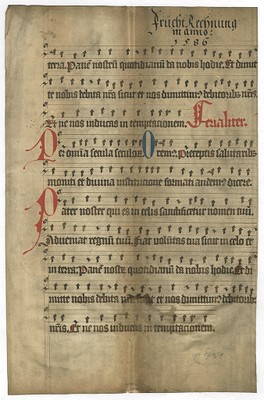 Frücht Rechnung
in anno:
1586
terra. Panē nostrū quotidianū da nobis hodie. Et dimit
te nobis debita nr̄a sicut et nos dimittim9 debitorib9 nr̄is.
Et ne nos inducas in temptationem. Ferialiter.
Per omnia secula seculor̄. Orem9. Preceptis salutarib9
moniti et divina institutione formati audem9 dicere.
Pater noster qui es in celis sanctificetur nomen tuū.
Adveniat regnū tuū. Fiat voluntas tua sicut in celo et
in terra. Panē nostrū quotidianū da nobis hodie. Et di
mitte nobis debita nr̄a sicut et nos dimittim9 debitorib9
nr̄is. Et ne nos inducas in temptationem.